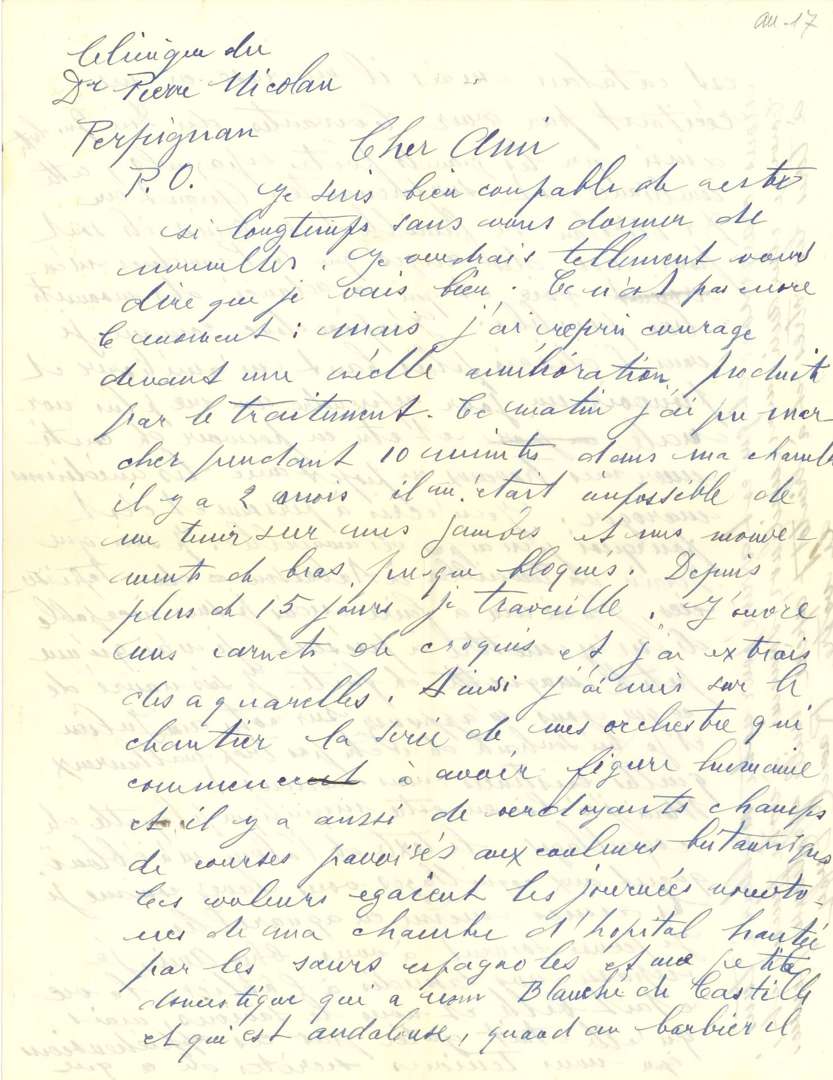 au-17
Clinique du
Dr Pierre Nicolau
Perpignan
P.O.
Cher Ami
Je serais bien coupable de rester
si longtemps sans vous donner de
nouvelles. Je voudrais tellement vous
dire que je vais bien. Ce n'est pas encore
le moment : mais j'ai repris courage
devant une réelle amélioration, produite
par le traitement. Ce matin j'ai pu mar-
cher pendant 10 minutes dans ma chambre
il y a 2 mois il m'était impossible de
me tenir sur mes jambes et mes mouve-
ments de bras presque bloqués. Depuis
plus de 15 jours je travaille. J'ouvre
mes carnets de croquis et j'ai extrais
des aquarelles. Ainsi j'ai mis sur le
chantier la serie de mes orchestre qui
commencent à avoir figure humaine
et il y a aussi de verdoyants champs
de courses pavoisés aux couleurs britanniques
Ces couleurs egaient les journées monoto-
nes de ma chambre d'hopital hantée
par les sœurs espagnoles et une petite
domestique qui a nom Blanche de Castille
et qui est andalouse, quand au barbier il